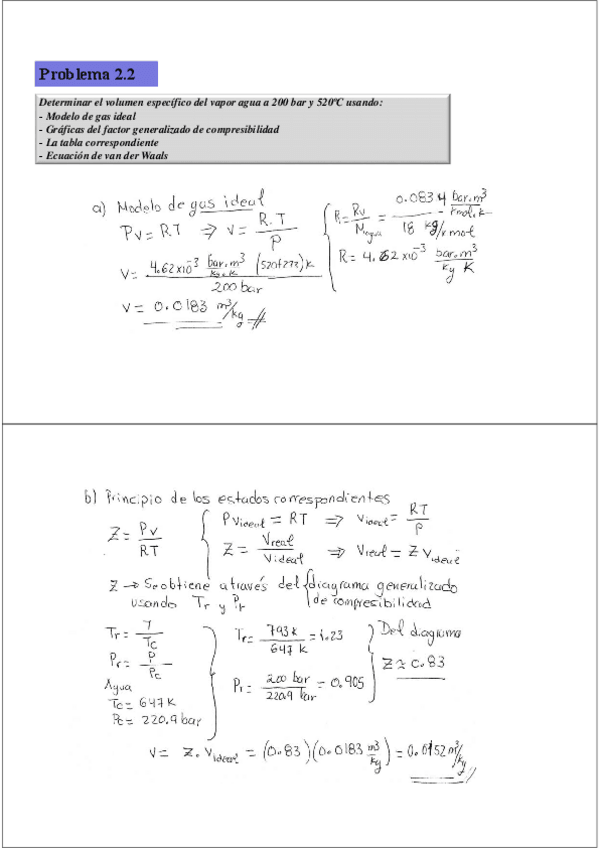 Problema 2.2
Determinar el volumen específico del vapor agua a 200 bar y 520ºC usando:
- Modelo de gas ideal
- Gráficas del factor generalizado de compresibilidad
- La tabla correspondiente
- Ecuación de van der Waals
a) Modelo de gas ideal
Pv = R.T ⇒ v = R.T / P
R = Rv / Magua = 0.0834 bar.m³/kmol.K / 18 kg/kmol
R = 4.62x10⁻³ bar.m³/kg K
v = 4.62x10⁻³ bar.m³/kg.K (520+273)K / 200 bar
v = 0.0183 m³/kg //
b) Principio de los estados correspondientes
Z = Pv / RT
Pvideal = RT ⇒ videal = RT / P
Z = vreal / videal ⇒ vreal = Z videal
Z → Se obtiene através del diagrama generalizado
usando Tr y Pr de compresibilidad
Tr = T / Tc
Pr = P / Pc
Agua
Tc = 647K
Pc = 220.9 bar
Tr = 793K / 647 K = 1.23
Pr = 200 bar / 220.9 bar = 0.905
Del diagrama
Z ≈ 0.83
v = Z. videal = (0.83)(0.0183 m³/kg) = 0.0152 m³/kg //